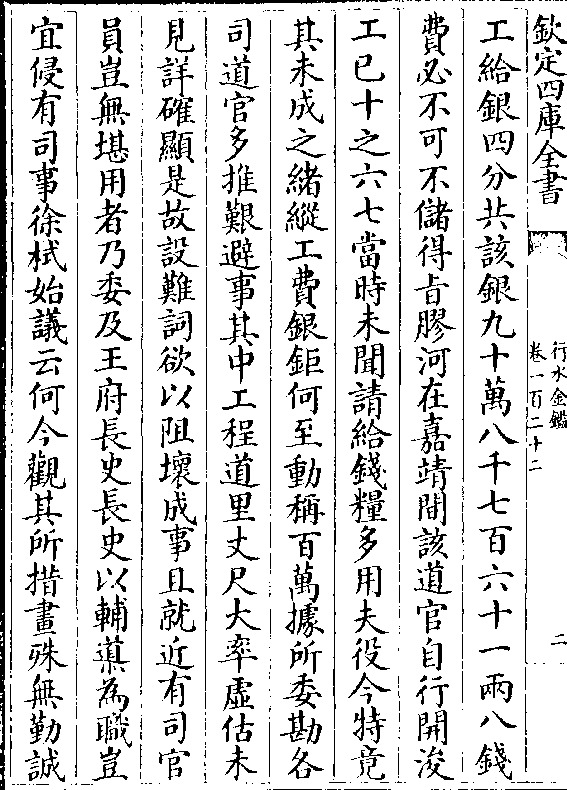 欽定四庫全書
行水金鑑
卷一百二十二
二
工給銀四分共該銀九十萬八千七百六十一兩八錢
費必不可不儲得旨膠河在嘉靖間該道官自行開浚
工已十之六七當時未聞請給錢糧多用夫役今特竟
其未成之緒縱工費銀鉅何至動稱百萬據所委勘各
司道官多推艱避事其中工程道里丈尺大率虛估未
見詳確顯是故設難詞欲以阻壞成事且就近有司官
員豈無堪用者乃委及王府長史長史以輔導為職豈
宜侵有司事徐栻始議云何今觀其所措畫殊無勤誠